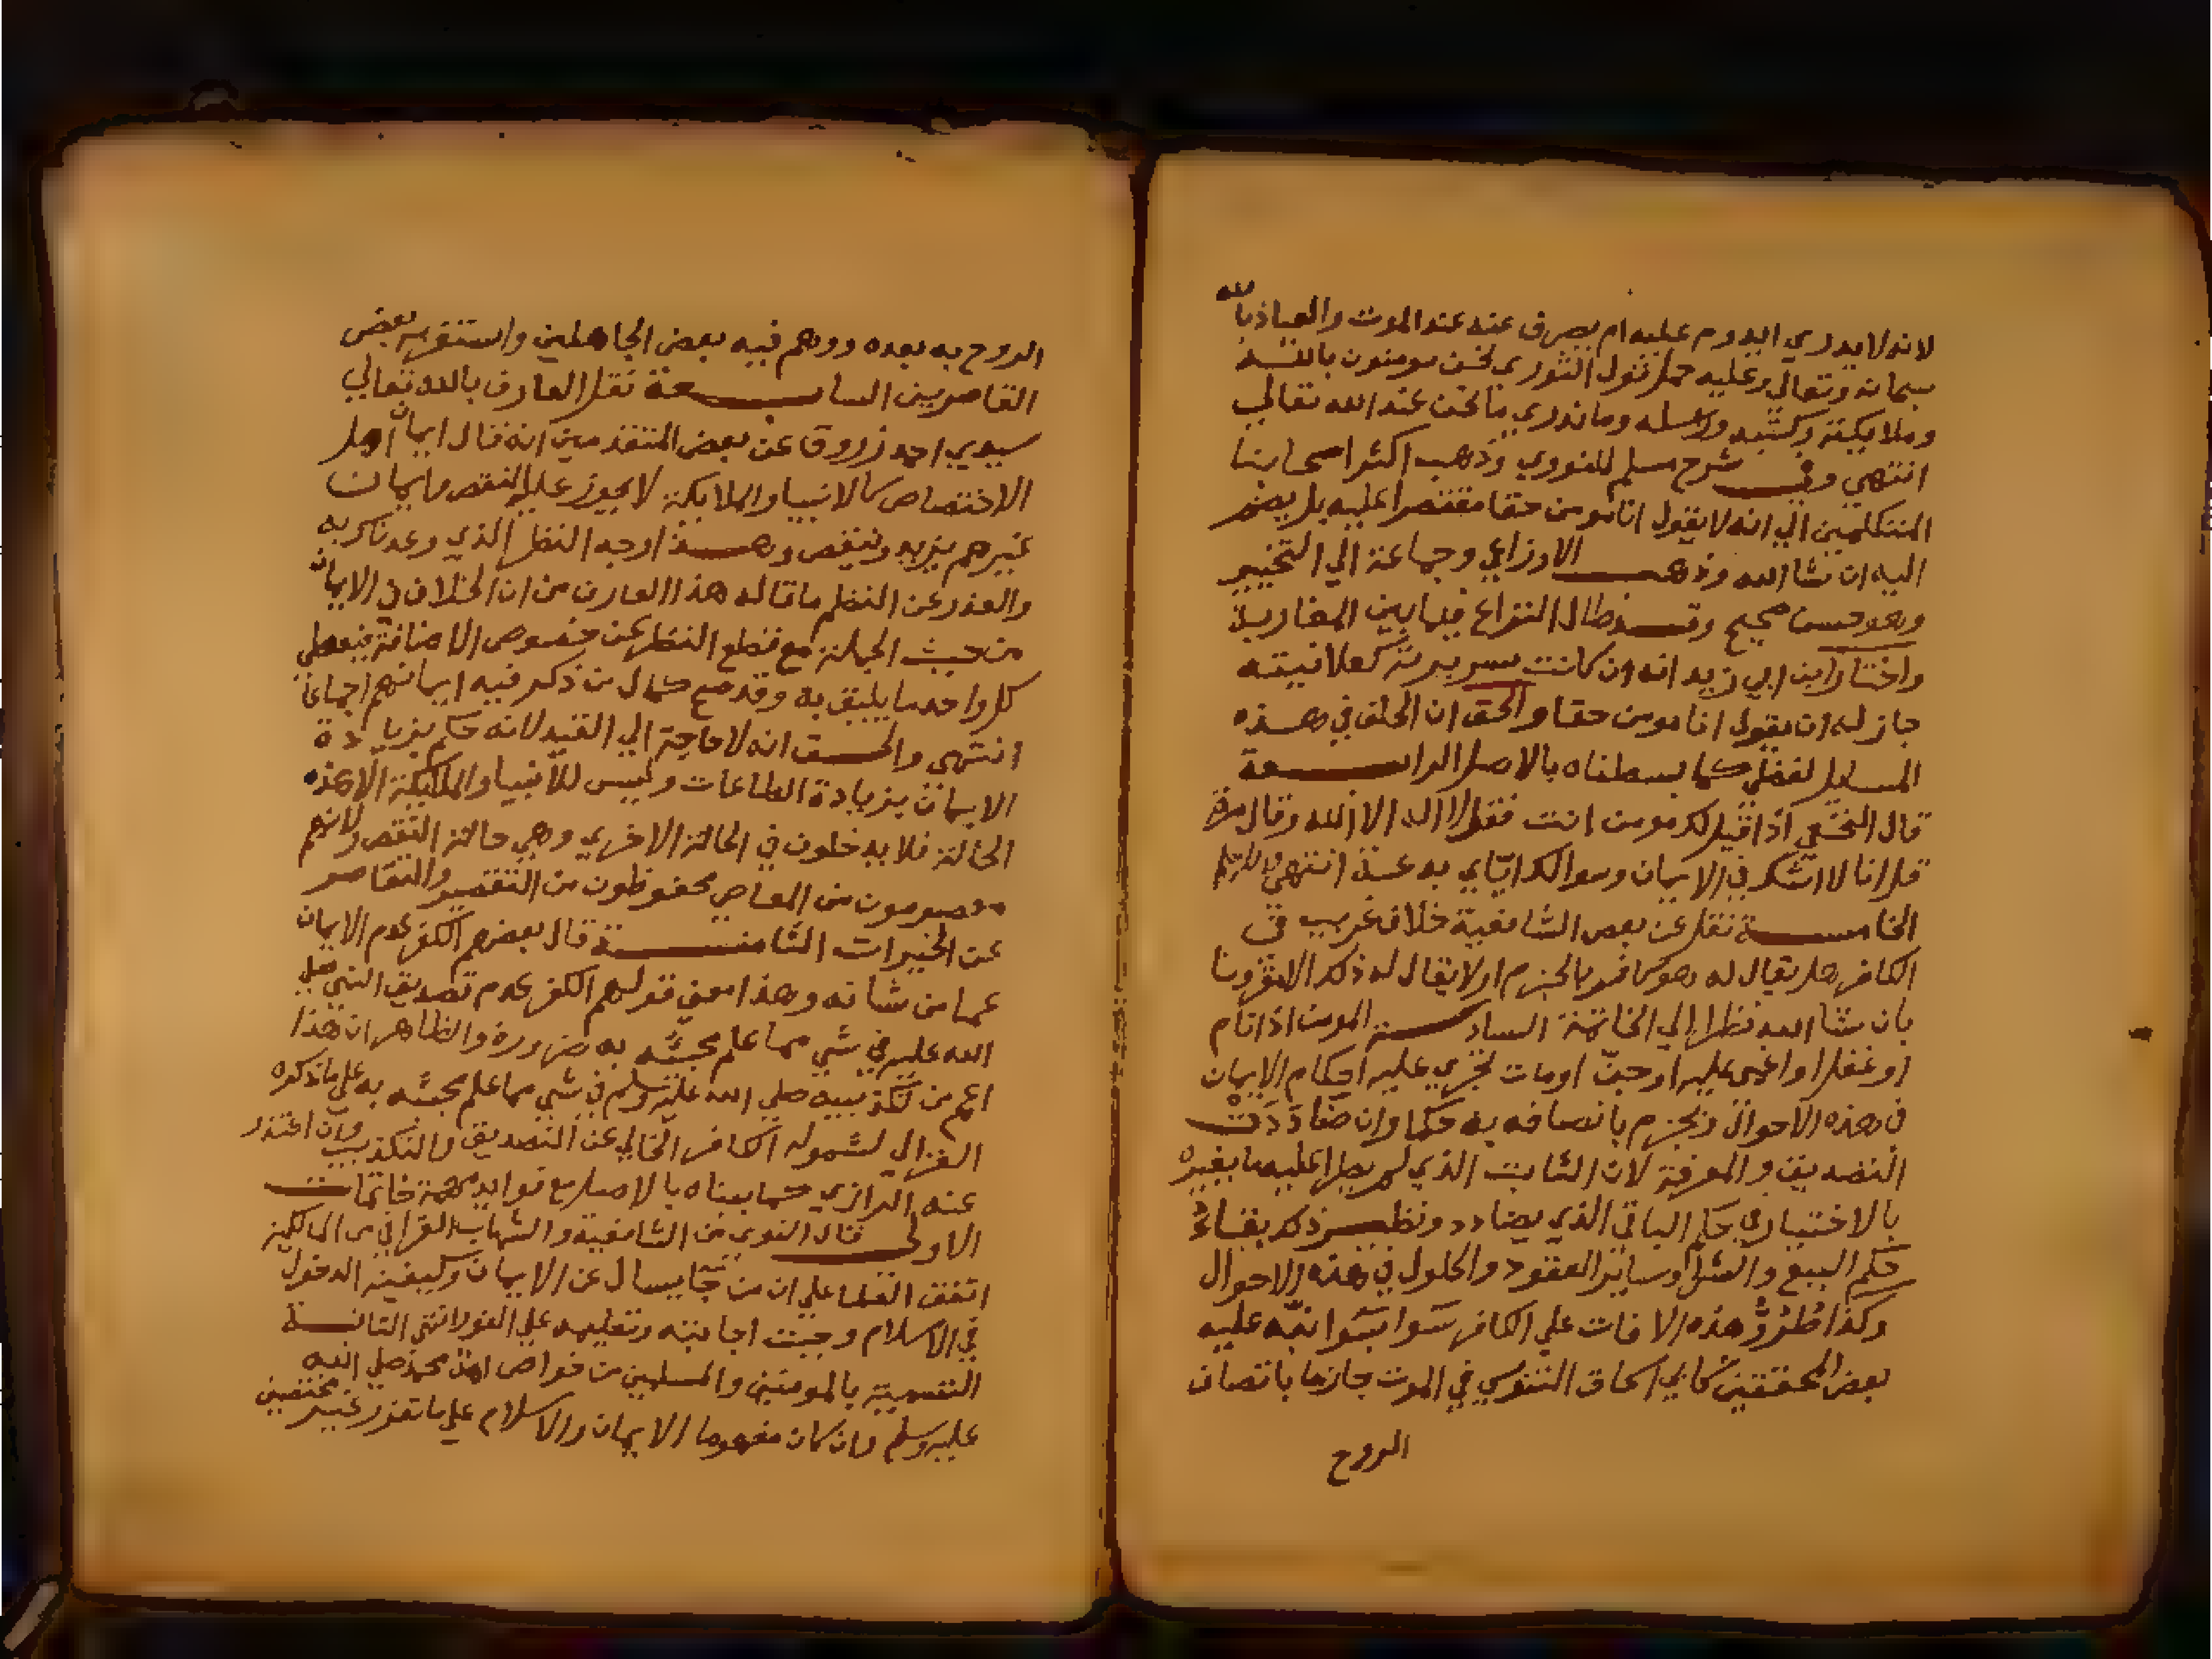 لانه لا يدري ايدوم عليه ام يصرف عنه عند الموت والعياذ بالله
سبحانه وتعالى وعليه حمل قول الثوري نحن مومنون بالله
وملايكته وكتبه ورسله وما ندري ما نحن عند الله تعالي
انتهي وفي شرح مسلم للنووي وذهب اكثر اصحابنا
المتكلمين الي انه لا يقول انا مومن حقا مقتصرا عليه بل يضم
اليه ان شا الله وذهب الاوزاعي وجماعة الي التخيير
وهو حسن صحيح وقد طال النزاع فيما بين المغاربة
واختار ابن ابي زيد انه ان كانت سريرته كعلانيته
جاز له ان يقول انا مومن حقا والحق ان الخلف في هذه
المسايل لفظي كما بسطناه بالاصل الرابعة
قال النخعي اذا قيل لك مومن انت فقل لا اله الا الله وقال مرة
قل انا لا اشك في الايمان وسوالك اياي بدعة انتهي
الخامسة نقل عن بعض الشافعية خلاف غريب في
الكافر هل يقال له هو كافر بالجزم اولا يقال له ذلك الا مقرونا
بان شا الله نظرا إلي الخاتمة السادسة المومن اذا نام
او غفل او اغمى عليه او جن او مات تجري عليه احكام الايمان
في هذه الاحوال ونجزم باتصافه به حكما وان ضاددت
التصديق والمعرفة لان الثابت الذي لم يطرا عليه ما يغيره
بالاختيار في حكم الباقي الذي يضادد ونظير ذلك بقاء
حكم البيع والشرا وساير العقود والحلول في هذه الاحوال
وكذا طروّ هذه الافات علي الكافر سوا بسوا نبّه عليه
بعض المحققين كابي اسحاق التنوسي في الموت جازما باتصاف
الروح
الروح به بعده ووهم فيه بعض الجاهلين واستغربه بعض
القاصرين السابعة نقل العارف بالله تعالي
سيدي احمد زروق عن بعض المتقدمين انه قال ايمان اهل
الاختصاص كالانبيا والملايكة لا يجوز عليه النقص وايمان
غيرهم يزيد وينقص وهذا وجه النظر الذي وعدناك به
والعذر عن النظم ما قاله هذا العارف من ان الخلاف في الايمان
من حيث الجملة مع قطع النظر عن خصوص الاضافة فيعطي
كل واحد ما يليق به وقد صح كمال من ذكر فيه ايمانهم اجماعا
انتهى والحق انه لا حاجة الي القيد لانه حكم بزيادة
الايمان بزيادة الطاعات وليس للانبيا والملايكة الا هذه
الحالة فلا يدخلون في الحالة الاخري وهي حالة النقص لانهم
معصومون من المعاصي محفوظون من التقصير والتقاصر
عن الخيرات الثامنة قال بعضهم الكفر عدم الايمان
عما من شانه وهذا معني قولهم الكفر عدم تصديق النبي صلي
الله عليه في شي مما علم مجيئه به ضرورة والظاهر ان هذا
اعم من تكذيبه صلي الله عليه وسلم في شي مما علم مجيئه به علي ما ذكره
الغزالي لشموله الكافر الخالي عن التصديق والتكذيب وان اعتذر
عنه الرازي كما بيناه بالاصل مع فوايد مهمة خاتمات
الاولى قال النووي من الشافعية والشهاب القرافي من المالكية
اتفق العلما علي ان من جا يسال عن الايمان وكيفية الدخول
في الاسلام وجبت اجابته وتعليمه علي الفور انتهى الثانية
التسمية بالمومنين والمسلمين من خواص امة محمد صلي الله
عليه وسلم وان كان مفهوما الايمان والاسلام علي ما تقرر غير مختصين